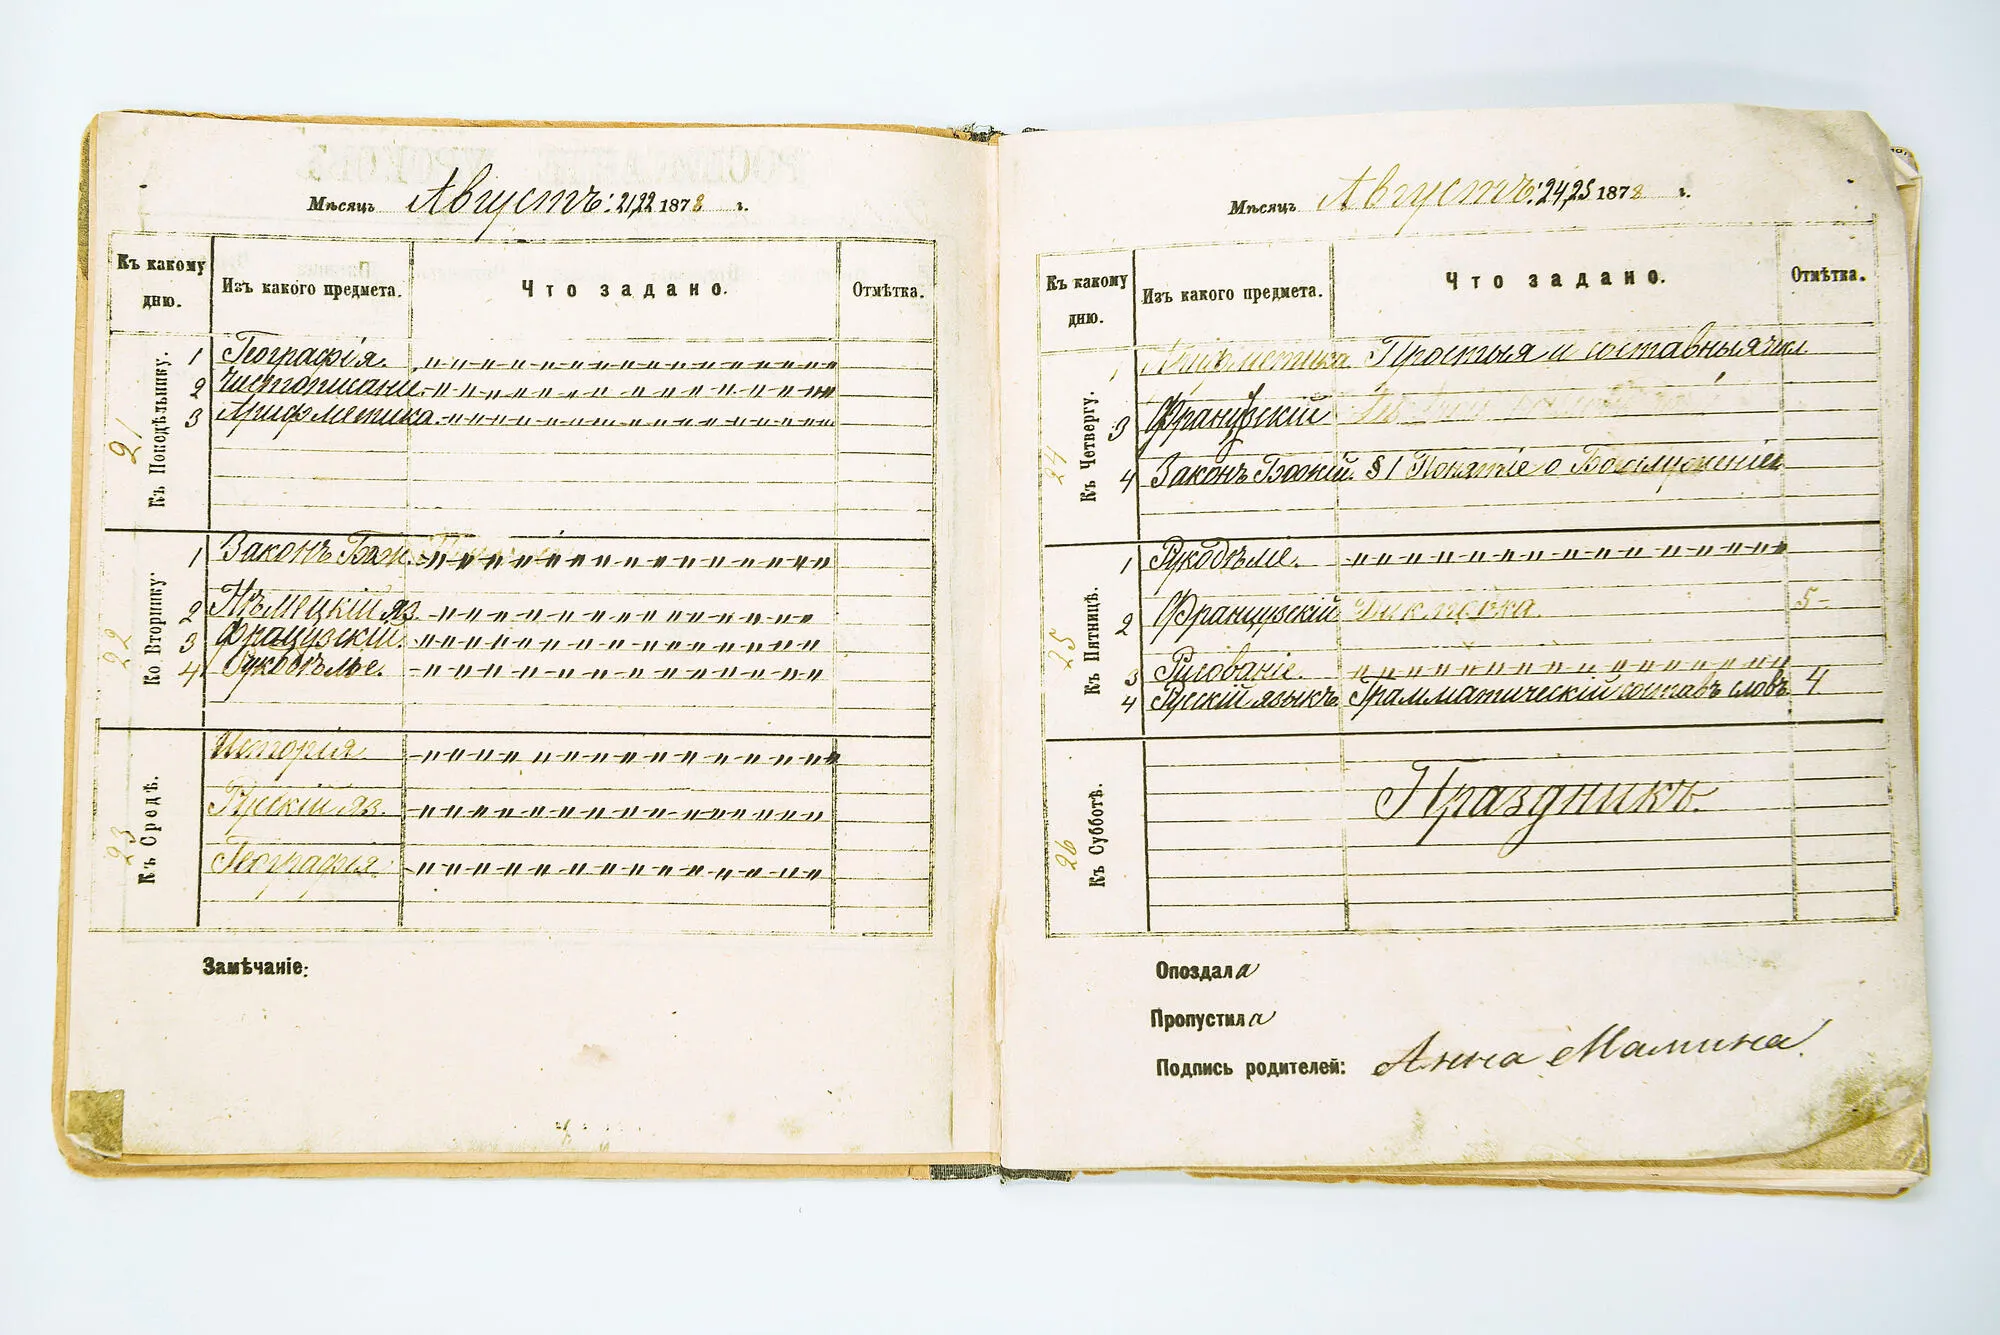 Мѣсяцъ Августъ: 21,22 1878 г.
Къ какому дню. Изъ какого предмета. Что задано. Отмѣтка.
21 Къ Понедѣльнику.
1 Географія.
2 Чистописаніе.
3 Арифметика.
22 Ко Вторнику.
1 Законъ Божі.
2 Нѣмецкій яз.
3 Фрацузскій.
4 Рукодѣлье.
23 Къ Средѣ.
Исторія.
Русскій яз.
Географія.
Замѣчаніе:
Мѣсяцъ Августъ: 24,25 1878 г.
Къ какому дню. Изъ какого предмета. Что задано. Отмѣтка.
24 Къ Четвергу.
1 Арифметика. Простыя и составныя
3 Французскій
4 Законъ Божій. § 1 Понятіе о Богослуженіи
25 Къ Пятницѣ.
1 Рукодѣлие.
2 Французскій Диктовка. 5-
3 Рисованіе.
4 Русскій языкъ. Грамматическій составъ словъ 4
26 Къ Субботѣ.
Праздникъ.
Опоздала
Пропустила
Подпись родителей: Анна Мамина.